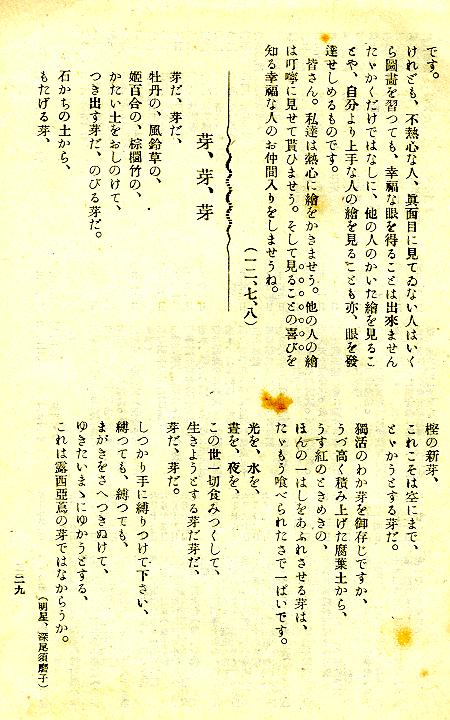 です。
けれども、不熱心な人、眞面目に見てゐない人はいく
ら圖畫を習つても、幸福な眼を得ることは出來ません
たゞかくだけではなしに、他の人のかいた繪を見るこ
とや、自分より上手な人の繪を見ることも亦、眼を發
達せしめるものです。
皆さん。私達は熱心に繪をかきませう。他の人の繪
は叮嚀に見せて貰ひませう。そして見ることの喜びを
知る幸福な人のお仲間入りをしませうね。
(一二、七、八)
芽、芽、芽
芽だ、芽だ、
牡丹の、風鈴草の、
姫百合の、棕櫚竹の、
かたい土をおしのけて、
つき出す芽だ、のびる芽だ。
石かちの土から、
もたげる芽、
樫の新芽、
これこそは空にまで、
とゞかうとする芽だ。
獨活のわか芽を御存じですか、
うづ高く積み上げた腐葉土から、
うす紅のときめきの、
ほんの一はしをあふれさせる芽は、
たゞもう喰べられたさで一ぱいです。
光を、水を、
晝を、夜を、
この世一切食みつくして、
生きようとする芽だ芽だ、
芽だ、芽だ。
しつかり手に縛りつけて下さい、
縛つても、縛つても、
まがきをさへつきぬけて、
ゆきたいまゝにゆかうとする、
これは露西亞蔦の芽ではなからうか。
(明星、深尾須磨子)
三九